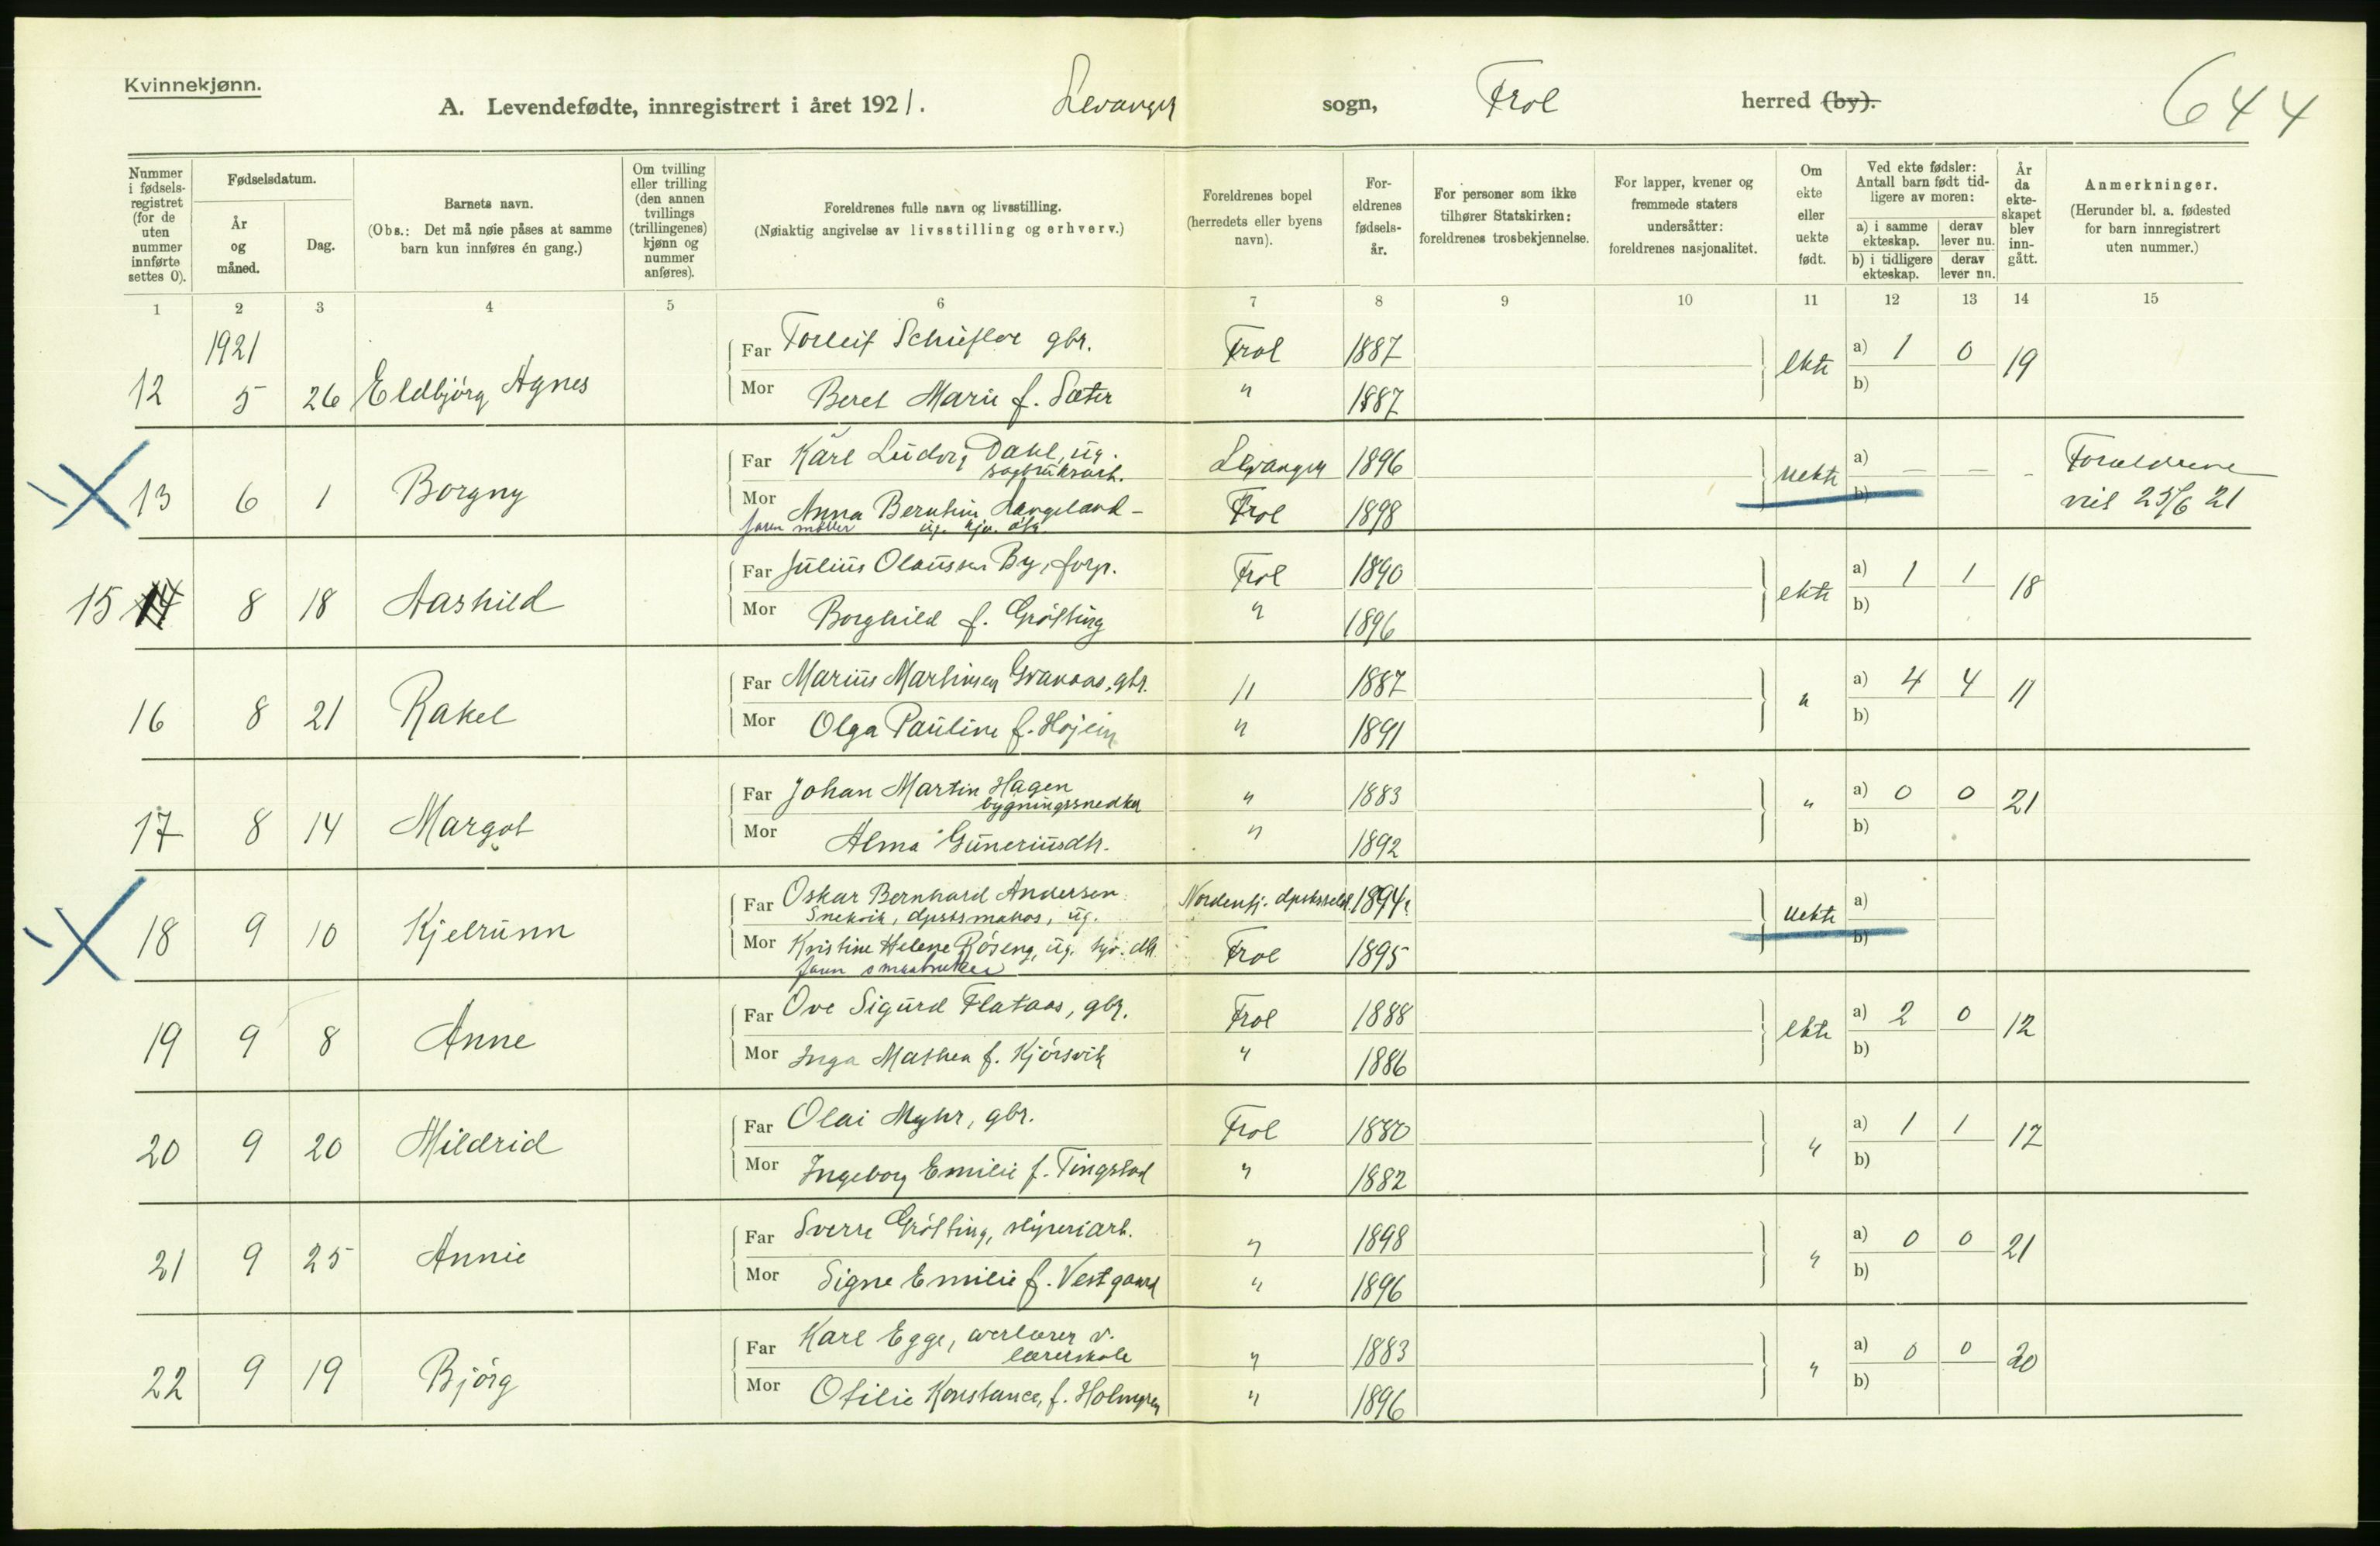 Kvinnekjønn.
A. Levendefødte, innregistrert i året 1921. Levanger sogn, Frol herred (by).
644
Nummer i fødsels-registret (for de uten nummer innførte settes 0).
Fødselsdatum.
År og måned.
Dag.
Barnets navn.
(Obs.: Det må nøie påses at samme barn kun innføres én gang.)
Om tvilling eller trilling (den annen tvillings (trillingenes) kjønn og nummer anføres).
Foreldrenes fulle navn og livsstilling.
(Nøiaktig angivelse av livsstilling og erhverv.)
Foreldrenes bopel (herredets eller byens navn).
For-eldrenes fødsels-år.
For personer som ikke tilhører Statskirken: foreldrenes trosbekjennelse.
For lapper, kvener og fremmede staters undersåtter: foreldrenes nasjonalitet.
Om ekte eller uekte født.
Ved ekte fødsler: Antall barn født tid-ligere av moren:
a) i samme ekteskap. derav lever nu.
b) i tidligere ekteskap. derav lever nu.
År da ekte-skapet blev inn-gått.
Anmerkninger.
(Herunder bl. a. fødested for barn innregistrert uten nummer.)
1 2 3 4 5 6 7 8 9 10 11 12 13 14 15
1921
Far Torleif gbr. Frol 1887
12 5 26 Eldbjörg Agnes ekte a) 1 0 19
Mor Beret Marie f. Sæter " 1887 b)
Far Karl Ludvig Dahl, ug. Levanger 1896
sagbruksarb.
13 6 1 Borgny uekte a) — — - Foreldrene
Mor Anna Bernhine Langeland - Frol 1898 b) viet 25/6 21
ug.
Far Julius Olaussen By, forp. Frol 1890
15 14 8 18 Aashild ekte a) 1 1 18
Mor Borghild f. Gröfting " 1896 b)
Far Marius Martinsen Granaas, gbr. " 1887
16 8 21 Rakel " a) 4 4 11
Mor Olga Pauline f. Hojem " 1891 b)
Far Johan Martin Hagen " 1883
bygningssnedker
17 8 14 Margot " a) 0 0 21
Mor Alma Guneriusdtr. " 1892 b)
Far Oskar Bernhard Andersen 1894
Snekvik, ug.
18 9 10 Kjelrunn uekte a)
Mor Kristine Helene Röseng, ug. Frol 1895 b)
Far Ove Sigurd Flataas, gbr. Frol 1888
19 9 8 Anne ekte a) 2 0 12
Mor Inga Mathea f. Kjörsvik " 1886 b)
Far Olai Myhr, gbr. Frol 1880
20 9 20 Mildrid " a) 1 1 17
Mor Ingeborg Emilie f. Tingstad " 1882 b)
Far Sverre Gröfting, " 1898
21 9 25 Annie " a) 0 0 21
Mor Signe Emilie f. Vestgaard " 1896 b)
Far Karl Egge, overlærer v. " 1883
lærerskole
22 9 19 Bjørg " a) 0 0 20
Mor Otilie Konstance, f. Holmgren " 1896 b)